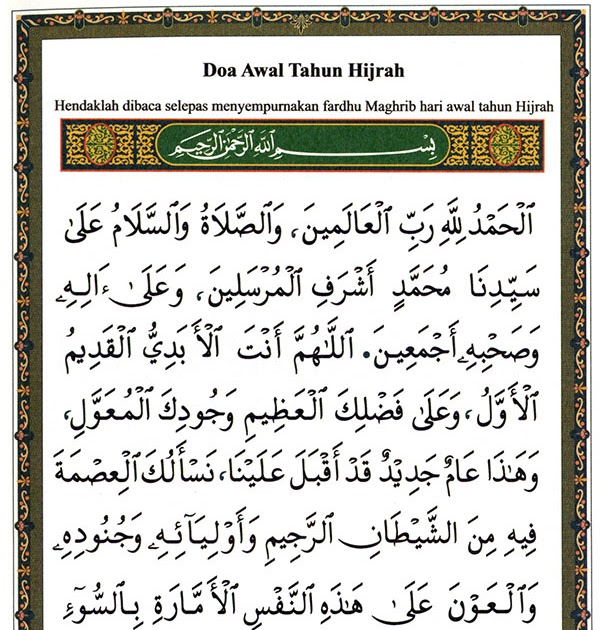 Doa Awal Tahun Hijrah
Hendaklah dibaca selepas menyempurnakan fardhu Maghrib hari awal tahun Hijrah
بِسْمِ اللَّهِ الرَّحْمَٰنِ الرَّحِيمِ
اَلْحَمْدُ لِلَّهِ رَبِّ الْعَالَمِينَ، وَالصَّلَاةُ وَالسَّلَامُ عَلَىٰ
سَيِّدِنَا مُحَمَّدٍ أَشْرَفِ الْمُرْسَلِينَ، وَعَلَىٰ ءَالِهِ
وَصَحْبِهِ أَجْمَعِينَ. اَللَّهُمَّ أَنْتَ الْأَبَدِيُّ الْقَدِيمُ
الْأَوَّلُ، وَعَلَىٰ فَضْلِكَ الْعَظِيمِ وَجُودِكَ الْمُعَوَّلِ،
وَهَٰذَا عَامٌ جَدِيْدٌ قَدْ أَقْبَلَ عَلَيْنَا، نَسْأَلُكَ الْعِصْمَةَ
فِيهِ مِنَ الشَّيْطَانِ الرَّجِيمِ وَأَوْلِيَآئِهِ وَجُنُودِهِ
وَالْعَوْنَ عَلَىٰ هَٰذِهِ النَّفْسِ الْأَمَّارَةِ بِالسُّوٓءِ